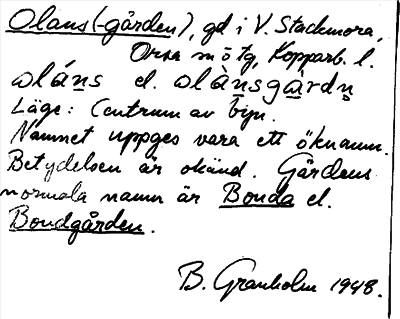 Olans (-gården), gd i V. Stackmora,
Orsa sn ö tg, Kopparb. l.
ɷláṉs el. ɷláṉsga̱rdṇ
Läge: Centrum av byn.
Namnet uppges vara ett öknamn.
Betydelsen är okänd. Gårdens
normala namn är Bonda el.
Bondgården.
B. Granholm 1948.